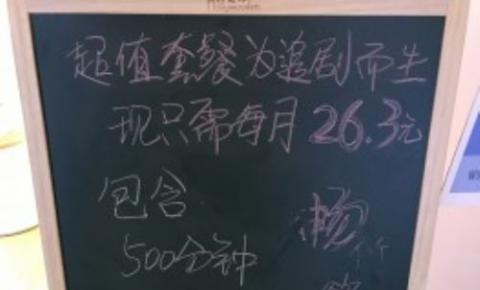 超值套餐为追剧而生
现只需每月26.3元
包含
500分钟